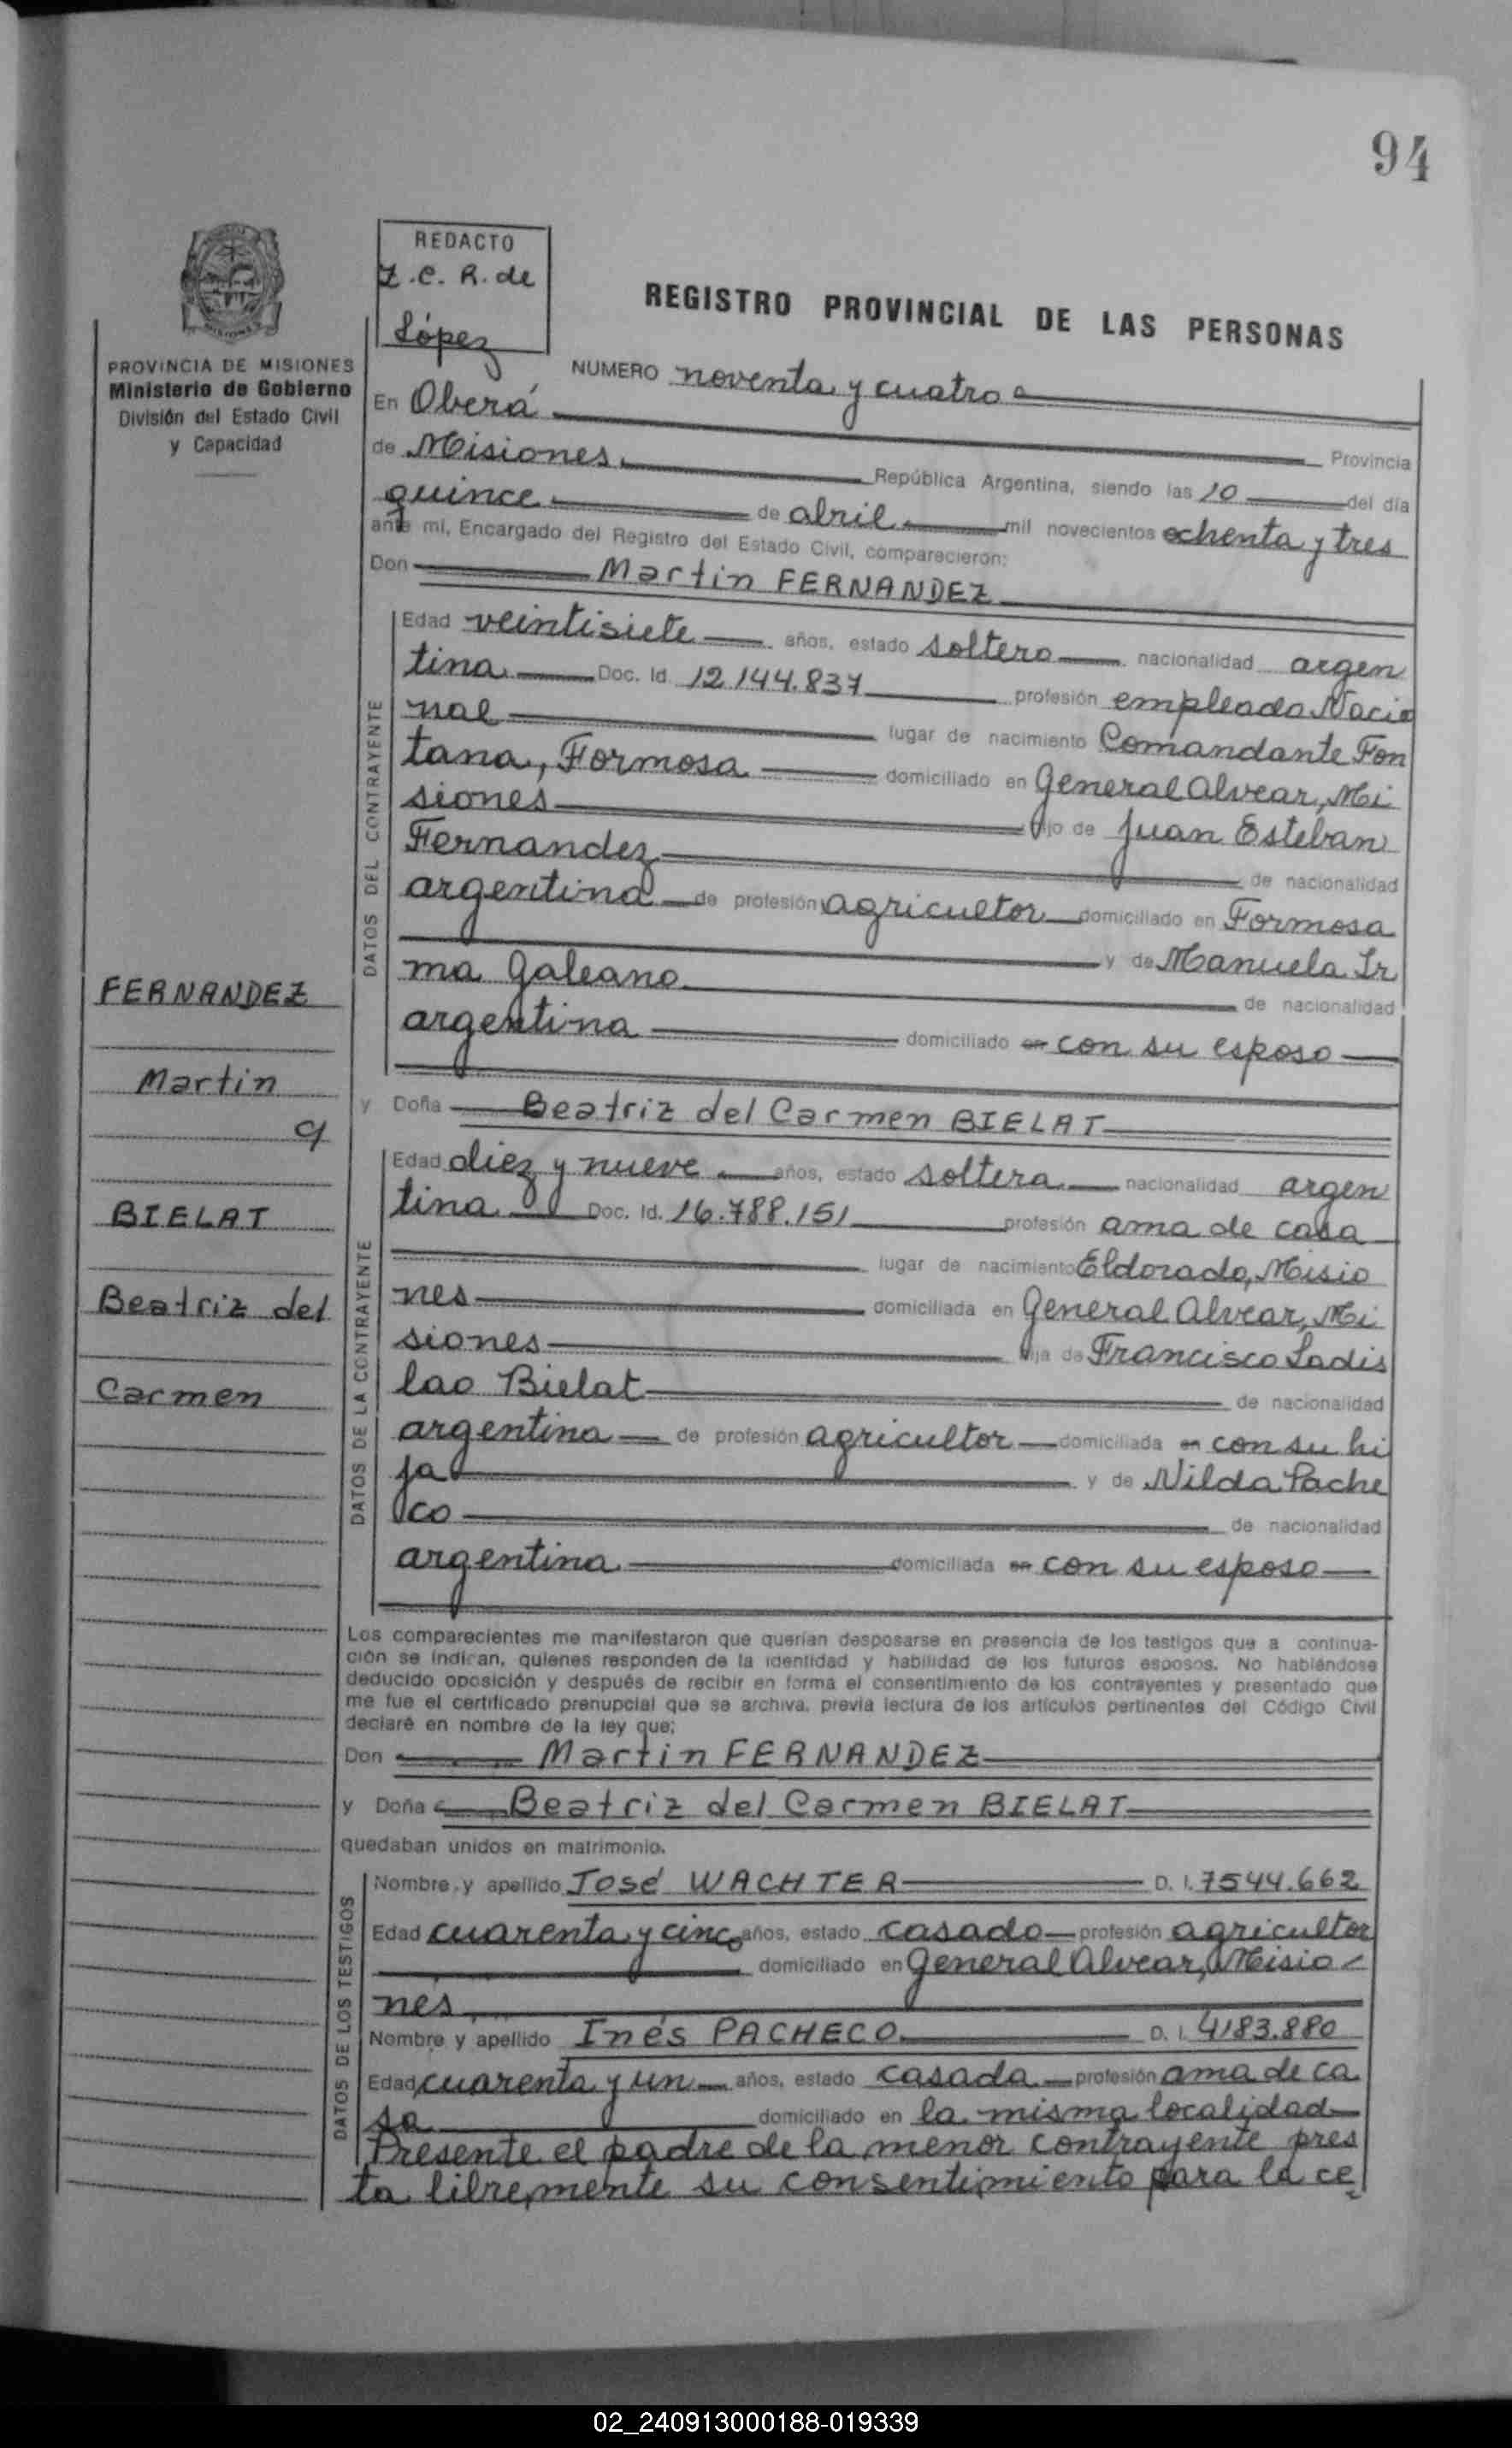 94
REDACTO
Z.C. R. de
López
REGISTRO PROVINCIAL DE LAS PERSONAS
PROVINCIA DE MISIONES
Ministerio de Gobierno
División del Estado Civil
y Capacidad
NUMERO noventa y cuatro
En Oberá Provincia
de Misiones República Argentina, siendo las 10 del día
quince de abril mil novecientos ochenta y tres
ante mi, Encargado del Registro del Estado Civil, comparecieron:
Don Martin FERNANDEZ
DATOS DEL CONTRAYENTE
Edad veintisiete años, estado soltero nacionalidad argen
tina Doc. Id. 12.144.837 profesión empleado Nacio
nal lugar de nacimiento Comandante Fon
tana, Formosa domiciliado en General Alvear, Mi
siones hijo de Juan Esteban
Fernandez de nacionalidad
argentina de profesión agricultor domiciliado en Formosa
y de Manuela Ir
ma Galeano de nacionalidad
argentina domiciliado en con su esposo
y Doña Beatriz del Carmen BIELAT
DATOS DE LA CONTRAYENTE
Edad diez y nueve años, estado soltera nacionalidad argen
tina Doc. Id. 16.788.151 profesión ama de casa
lugar de nacimiento Eldorado, Misio
nes domiciliada en General Alvear, Mi
siones hija de Francisco Ladis
lao Bielat de nacionalidad
argentina de profesión agricultor domiciliada en con su hi
ja y de Nilda Pache
co de nacionalidad
argentina domiciliada en con su esposo
FERNANDEZ
Martin
BIELAT
Beatriz del
Carmen
Los comparecientes me manifestaron que querían desposarse en presencia de los testigos que a continua-
ción se indican, quienes responden de la identidad y habilidad de los futuros esposos. No habiéndose
deducido oposición y después de recibir en forma el consentimiento de los contrayentes y presentado que
me fue el certificado prenupcial que se archiva, previa lectura de los artículos pertinentes del Código Civil
declaré en nombre de la ley que;
Don Martin FERNANDEZ
y Doña Beatriz del Carmen BIELAT
quedaban unidos en matrimonio.
DATOS DE LOS TESTIGOS
Nombre y apellido José WACHTER D. I. 7544.662
Edad cuarenta y cinco años, estado casado profesión agricultor
domiciliado en General Alvear, Misio-
nes
Nombre y apellido Inés PACHECO D. I. 4183.880
Edad cuarenta y un años, estado casada profesión ama de ca
sa domiciliado en la misma localidad
Presente el padre de la menor contrayente pres
ta libremente su consentimiento para la ce
02_240913000188-019339